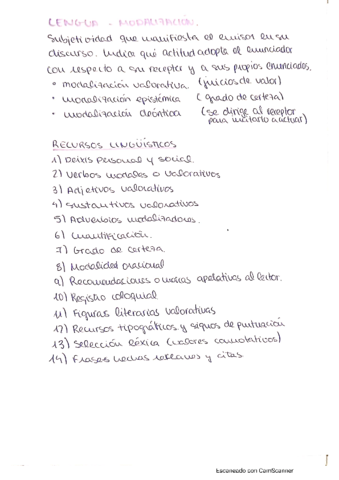 LENGUA - MODALIZACIÓN.
Subjetividad que manifiesta el emisor en su
discurso. Indica qué actitud adopta el enunciador
con respecto a su receptor y a sus propios enunciados.
• modalización valorativa (juicios de valor)
• modalización epistémica (grado de certeza)
• modalización deóntica (se dirige al receptor
para incitarlo a actuar)
RECURSOS LINGÜÍSTICOS
1) Deixis personal y social
2) Verbos modales o valorativos
3) Adjetivos valorativos
4) Sustantivos valorativos
5) Adverbios modalizadores.
6) Cuantificación.
7) Grado de certeza.
8) Modalidad oracional
9) Recomendaciones o marcas apelativas al lector.
10) Registro coloquial
11) Figuras literarias valorativas
12) Recursos tipográficos y signos de puntuación
13) Selección léxica (valores connotativos)
14) Frases hechas refranes y citas
Escaneado con CamScanner